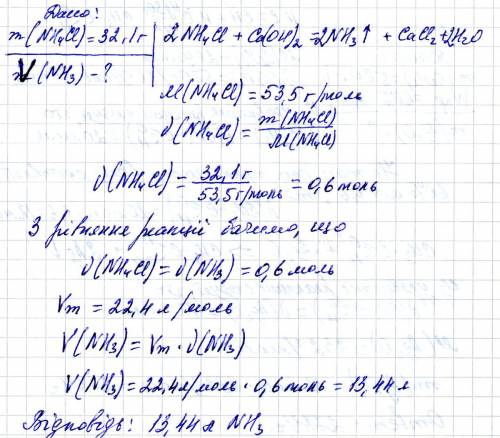 Дано:
m(NH₄Cl)=32,1г
V(NH₃) - ?
2NH₄Cl + Ca(OH)₂ = 2NH₃↑ + CaCl₂ + 2H₂O
M(NH₄Cl) = 53,5 г/моль
ν(NH₄Cl) = m(NH₄Cl) / M(NH₄Cl)
ν(NH₄Cl) = 32,1 г / 53,5 г/моль = 0,6 моль
З рівняння реакції бачимо, що
ν(NH₄Cl) = ν(NH₃) = 0,6 моль
Vm = 22,4 л/моль
V(NH₃) = Vm · ν(NH₃)
V(NH₃) = 22,4 л/моль · 0,6 моль = 13,44 л
Відповідь: 13,44 л NH₃